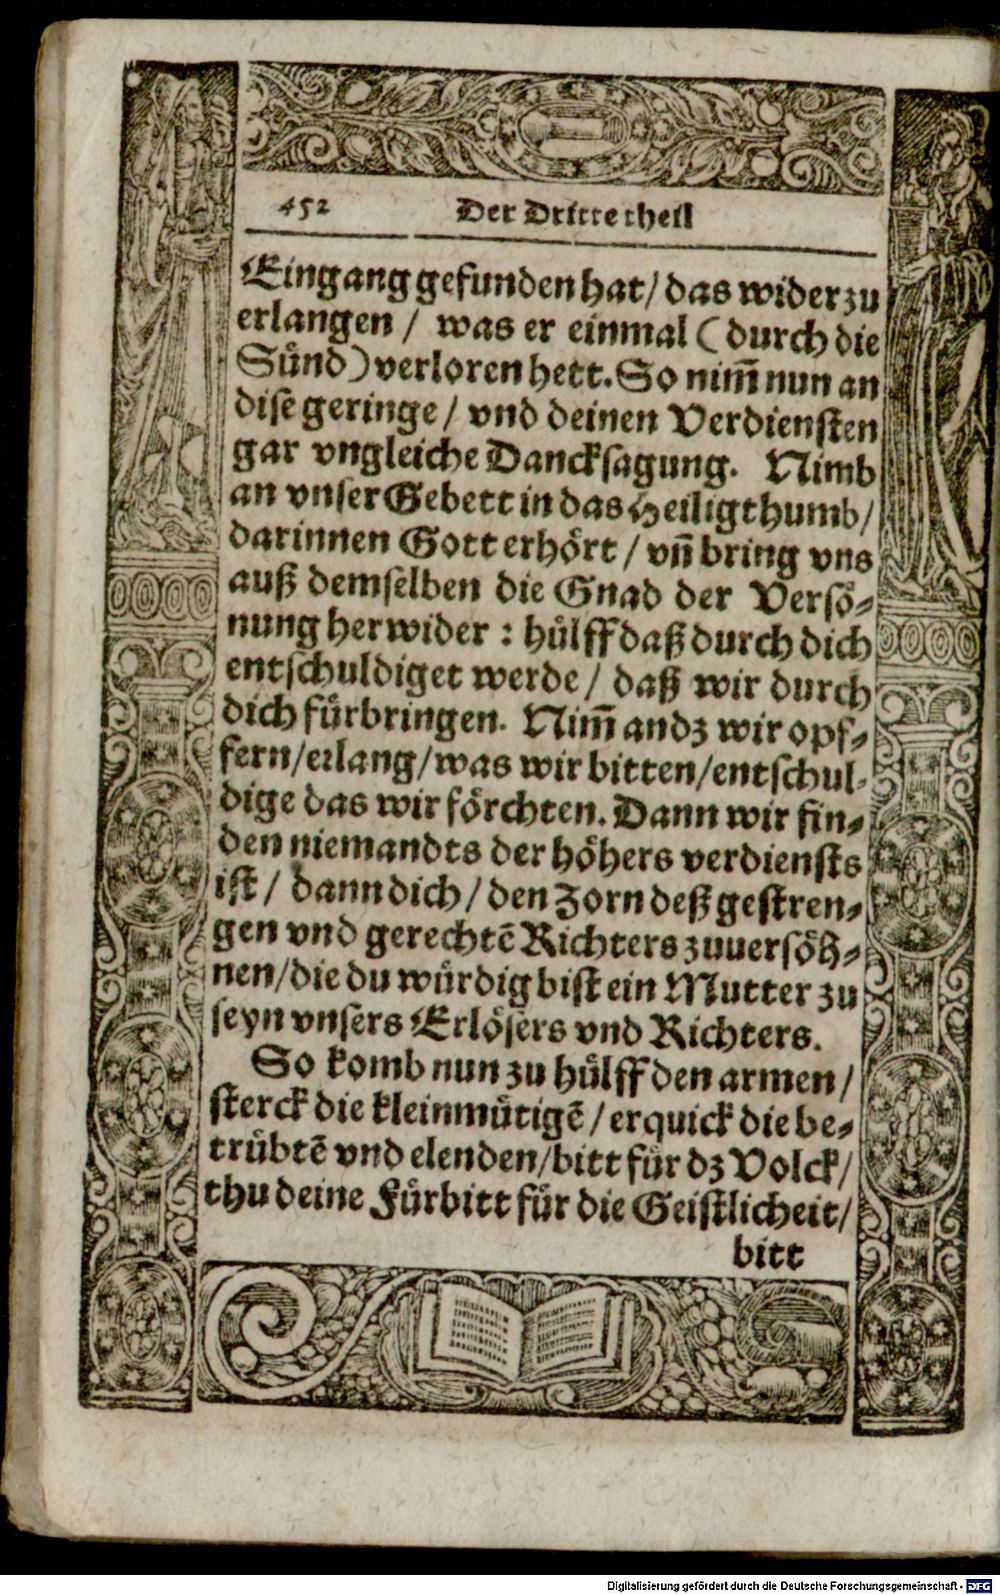 452 Der Dritte theil
Eingang gefunden hat/ das wider zu
erlangen / was er einmal ( durch die
Sünd) verloren hett. So nim̃ nun an
dise geringe / vnd deinen Verdiensten
gar vngleiche Dancksagung. Nimb
an vnser Gebett in das Heiligthumb/
darinnen Gott erhört / vñ bring vns
auß demselben die Gnad der Versö⸗
nung herwider : hülff daß durch dich
entschuldiget werde / daß wir durch
dich fürbringen. Nim̃ an dz wir opf⸗
fern/erlang/was wir bitten/entschul⸗
dige das wir förchten. Dann wir fin⸗
den niemandts der höhers verdiensts
ist / dann dich / den Zorn deß gestren⸗
gen vnd gerechtẽ Richters zuuersöh⸗
nen/die du würdig bist ein Mutter zu
seyn vnsers Erlösers vnd Richters.
So komb nun zu hülff den armen /
sterck die kleinmütigẽ / erquick die be⸗
trübtẽ vnd elenden/bitt für dz Volck/
thu deine Fürbitt für die Geistlicheit/
bitt
Digitalisierung gefördert durch die Deutsche Forschungsgemeinschaft - DFG